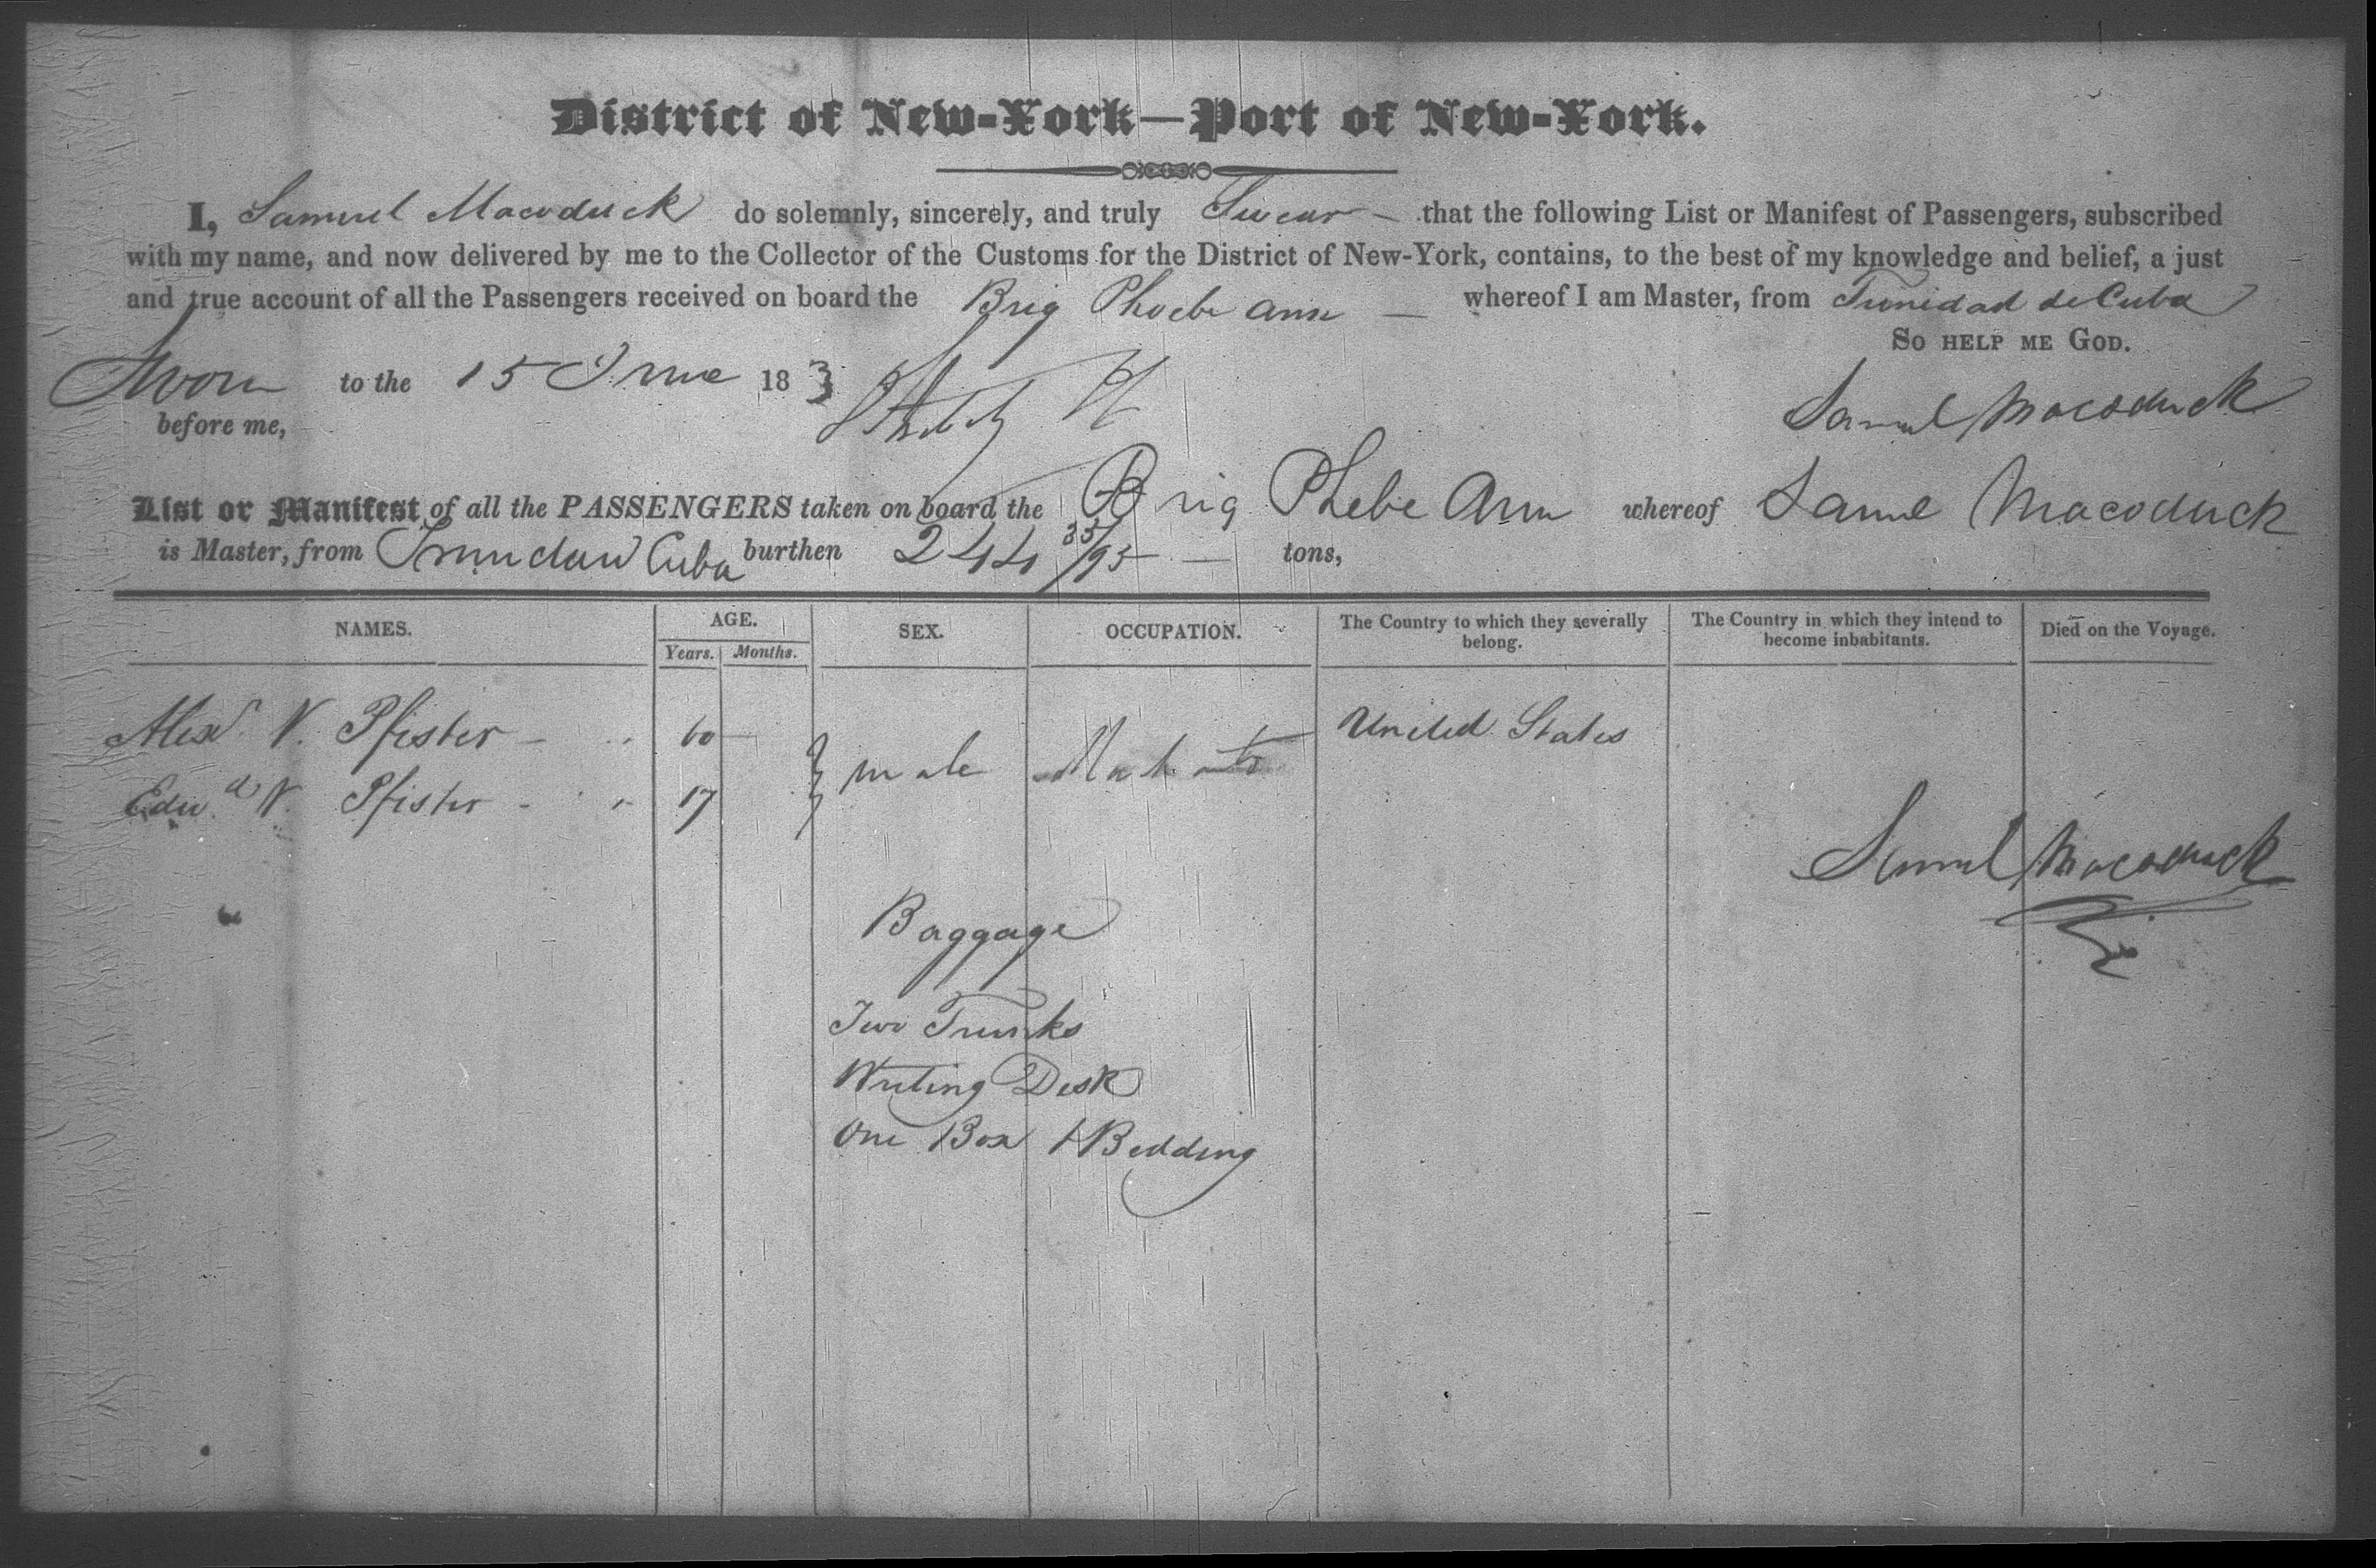 District of New-York—Port of New-York.
I, Samuel Macoduck do solemnly, sincerely, and truly Swear – that the following List or Manifest of Passengers, subscribed
with my name, and now delivered by me to the Collector of the Customs for the District of New-York, contains, to the best of my knowledge and belief, a just
and true account of all the Passengers received on board the Brig Phoebe Ann – whereof I am Master, from Trinidad de Cuba
So help me God.
Sworn to the 15 June 183
before me,
Samuel Macoduck
List or Manifest of all the PASSENGERS taken on board the Brig Phebe Ann whereof Saml Macoduck
is Master, from Trinidad Cuba burthen 244 35/95 – tons,
NAMES. AGE. SEX. OCCUPATION. The Country to which they severally belong. The Country in which they intend to become inhabitants. Died on the Voyage.
Years. Months.
Alexr. V. Pfister – 60 United States
male
Edwd. V. Pfister - 17
Samuel Macoduck
Baggage
Two Trunks
Writing Desk
One Box & Bedding